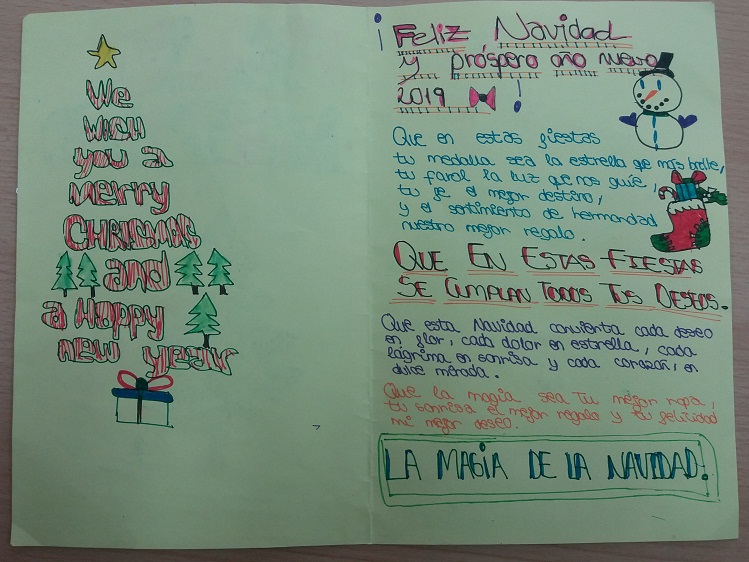 We
wich
you a
merry
CHRISTMAS
and
a Happy
new
year
¡Feliz Navidad
y próspero año nuevo
2019 !
Que en estas fiestas
tu medalla sea la estrella que más brille,
tu farol la luz que nos guíe,
tu fe el mejor destino,
y el sentimiento de hermandad
nuestro mejor regalo.
QUE EN ESTAS FIESTAS
SE CUMPLAN TODOS TUS DESEOS.
Que esta Navidad convierta cada deseo
en flor, cada dolor en estrella, cada
lágrima en sonrisa y cada corazón, en
dulce mirada.
Que la magia sea tu mejor
tu sonrisa el mejor regalo y tu felicidad
mi mejor deseo.
LA MAGIA DE LA NAVIDAD!